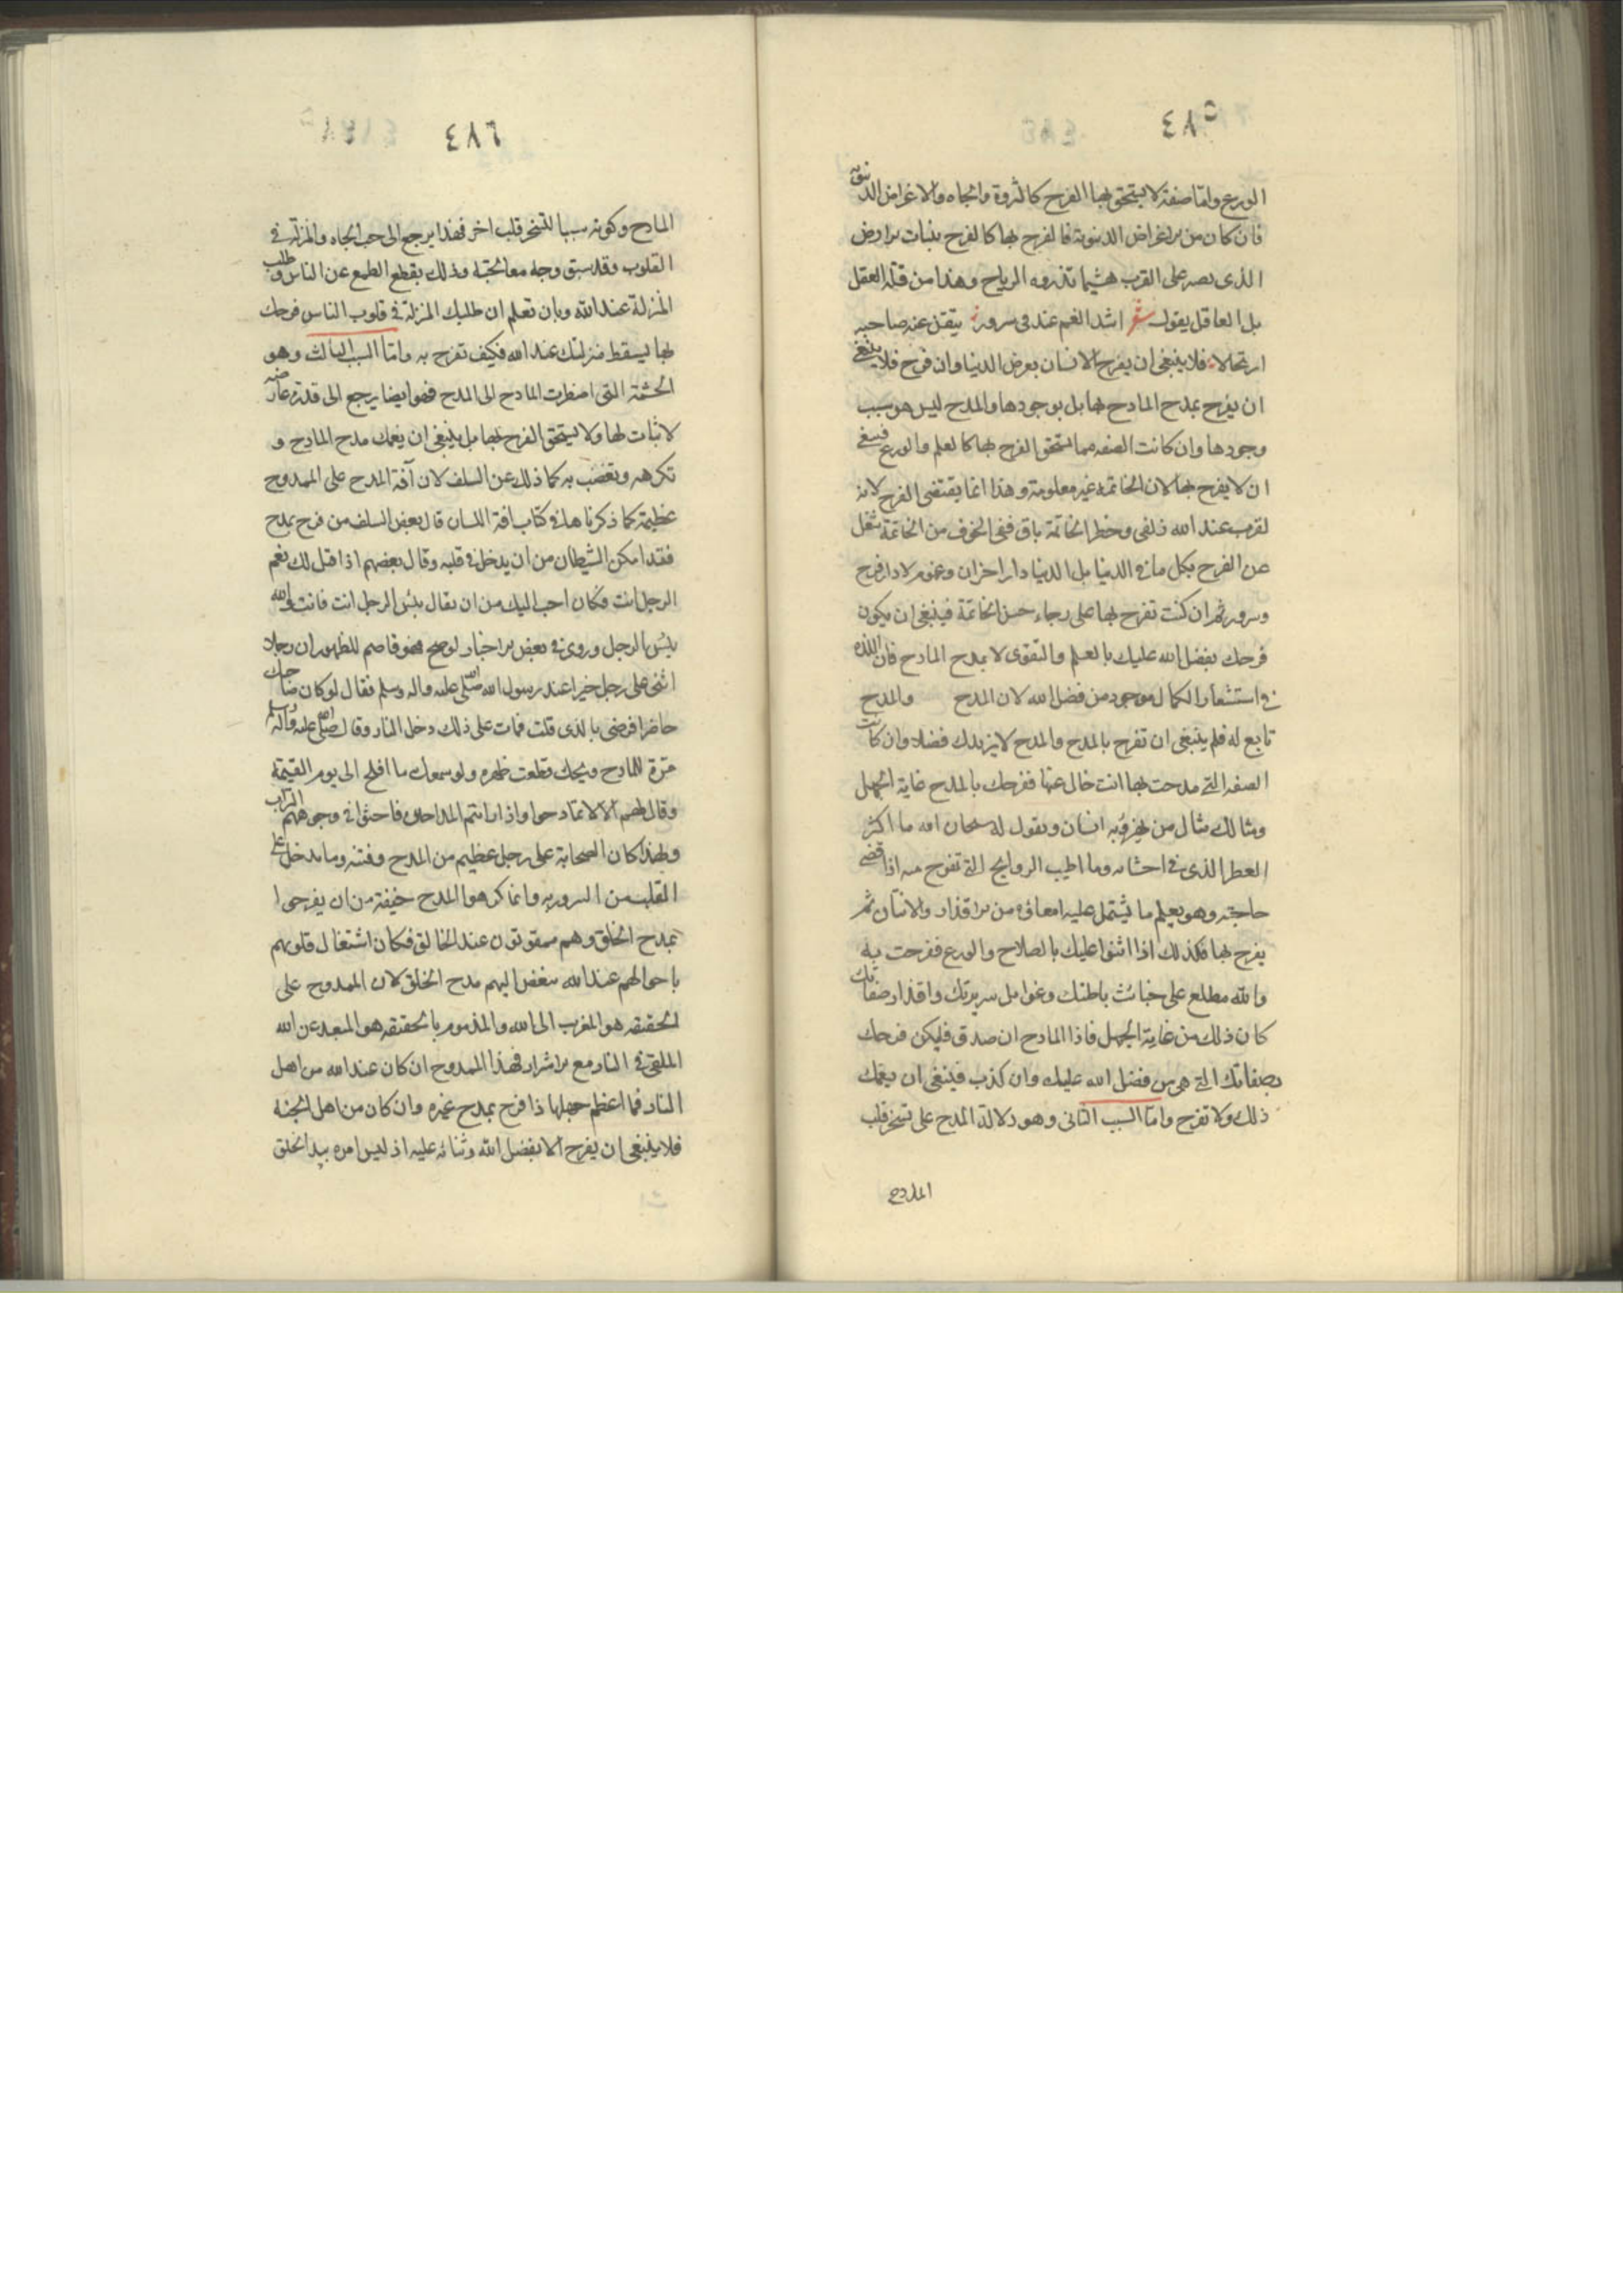 ٤٨٥
الورع واما صفة لا يستحق بها الفرح كالثروة والجاه والاغراض الدنيوية
فان كان من الاغراض الدنيوية فالفرح بها كالفرح بنبات الارض
الذى يصير على القرب هشيما تذروه الرياح وهذا من قلة العقل
بل العاقل يقول شعر اشد الغم عندى فى سرور تيقن عنه صاحبه
ارتحالا فلا ينبغى ان يفرح الانسان بعرض الدنيا وان فرح فلا ينبغى
ان يفرح بمدح المادح بها بل بوجودها والمدح ليس هو سبب
وجودها وان كانت الصفه مما يستحق الفرح بها كالعلم والورع فينبغى
ان لا يفرح بها لان الخاتمة غير معلومة وهذا انما يقتضى الفرح لانه
لقرب عند الله زلفى وخطر الخاتمة باق ففى الخوف من الخاتمة شغل
عن الفرح بكل ما فى الدنيا بل الدنيا دار احزان وغموم لا دار فرح
وسرور ثم ان كنت تفرح بها على رجاء حسن الخاتمة فينبغى ان يكون
فرحك بفضل الله عليك بالعلم والتقوى لا بمدح المادح فان اللذة
فى استشعار الكمال موجود من فضل الله لان المدح والمدح
تابع له فلم ينبغى ان تفرح بالمدح والمدح لا يزيدك فضلا وان كانت
الصفه التى مدحت بها انت خال عنها ففرحك بالمدح غاية الجهل
ومثالك مثال من يهزؤ به انسان ويقول له سبحان الله ما اكثر
العطر الذى فى احشائه وما اطيب الروايح التى تفوح منه اذا قضى
حاجته وهو يعلم ما يشتمل عليه امعاؤه من الاقذار والانتان ثم
يفرح بها فكذلك اذا اثنوا عليك بالصلاح والورع ففرحت به
والله مطلع على خبائث باطنك وغوائل سريرتك واقذار صفاتك
كان ذلك من غاية الجهل فاذا المادح ان صدق فليكن فرحك
بصفاتك التى هى من فضل الله عليك وان كذب فينبغى ان يغمك
ذلك ولا تفرح واما السبب الثانى وهو دلالة المدح على تسخر قلب
المادح
٤٨٦
المادح وكونه سببا لتسخر قلب اخر فهذا يرجع الى حب الجاه والمنزلة فى
القلوب وقد سبق وجه معالجته وذلك بقطع الطمع عن الناس وطلب
المنزلة عند الله وبان تعلم ان طلبك المنزلة فى قلوب الناس فرحك
بها يسقط منزلتك عند الله فكيف تفرح به واما السبب الثالث وهو
الحشمة التى اضطرت المادح الى المدح فهو ايضا يرجع الى قدرة عارضه
لا ثبات لها ولا يستحق الفرح بها بل ينبغى ان يغمك مدح المادح و
تكرهه وتغضب به كما ذلك عن السلف لان آفة المدح على الممدوح
عظيمة كما ذكرناها فى كتاب افة اللسان قال بعض السلف من فرح بمدح
فقد امكن الشيطان من ان يدخل فى قلبه وقال بعضهم اذا قيل لك نعم
الرجل انت فكان احب اليك من ان يقال بئس الرجل انت فانت والله
بئس الرجل وروى فى بعض الاخبار لو صح فهو قاصم للظهور ان رجلا
اثنى على رجل خيرا عند رسول الله صلى الله عليه واله وسلم فقال لو كان صاحبك
حاضرا فرضى بالذى قلت فمات على ذلك دخل النار وقال صلى الله عليه واله وسلم
مرة للمادح ويحك قطعت ظهره ولو سمعك ما افلح الى يوم القيمة
وقال لهم الا لا تمادحوا واذا رايتم المداحين فاحثوا فى وجوههم التراب
ولهذا كان الصحابة على رجل عظيم من المدح وفتنه وما يدخل على
القلب من السرور به وانما كرهوا المدح خيفة من ان يفرحوا
بمدح الخلق وهم ممقوتون عند الخالق فكان اشتغال قلوبهم
باحوالهم عند الله يبغض اليهم مدح الخلق لان الممدوح على
الحقيقه هو المقرب الى الله والمذموم بالحقيقه هو المبعد عن الله
الملقى فى النار مع الاشرار فهذا الممدوح ان كان عند الله من اهل
النار فما اعظم جهلها ذا فرح بمدح غيره وان كان من اهل الجنة
فلا ينبغى ان يفرح الا بفضل الله وثنائه عليه اذ ليس امره بيد الخلق